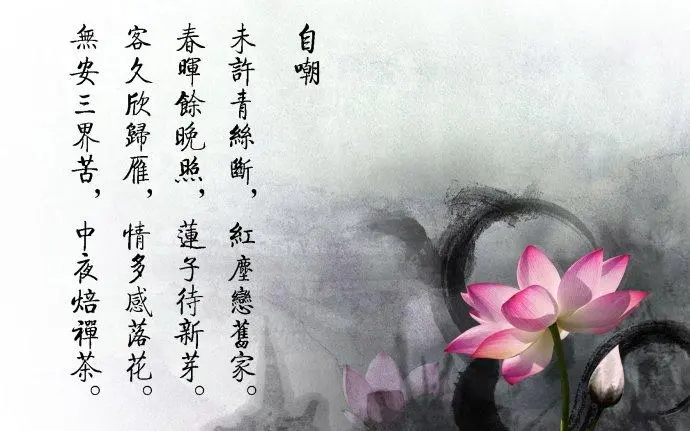 自嘲
未許青絲斷，紅塵戀舊家。
春暉餘晚照，蓮子待新芽。
客久欣歸雁，情多感落花。
無安三界苦，中夜焙禪茶。